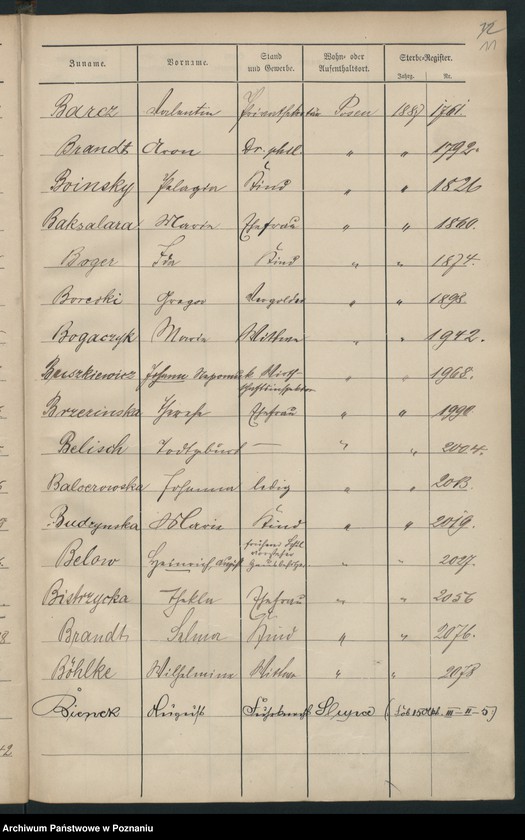 32
11
Zuname. Vorname. Stand und Gewerbe. Wohn- oder Aufenthaltsort. Sterbe-Register.
Jahrg. Nr.
Barcz Valentin Posen 1887 1761
Brandt Aron Dr. phil. " " 1792.
Boinsky Pelagia Kind " " 1826
Baksalara Maria Ehefrau " " 1860.
Boger Ida Kind " " 1874.
Boreski Gregor Vergolder " " 1898.
Bogaczyk Maria Wittwe " " 1942.
Johann Nepomuk " " 1968.
Brzerinska Ehefrau " " 1990
Belisch Todtgeburt — " " 2004.
Balcerowska Johanna ledig " " 2013.
Budzynska Maria Kind " " 2019.
Below Heinrich, August " " 2027.
Bistrzycka Thekla Ehefrau " " 2056
Brandt Selma Kind " " 2076.
Böhlke Wilhelmine Wittwe " " 2078
Bienek August Slupce
Archiwum Państwowe w Poznaniu